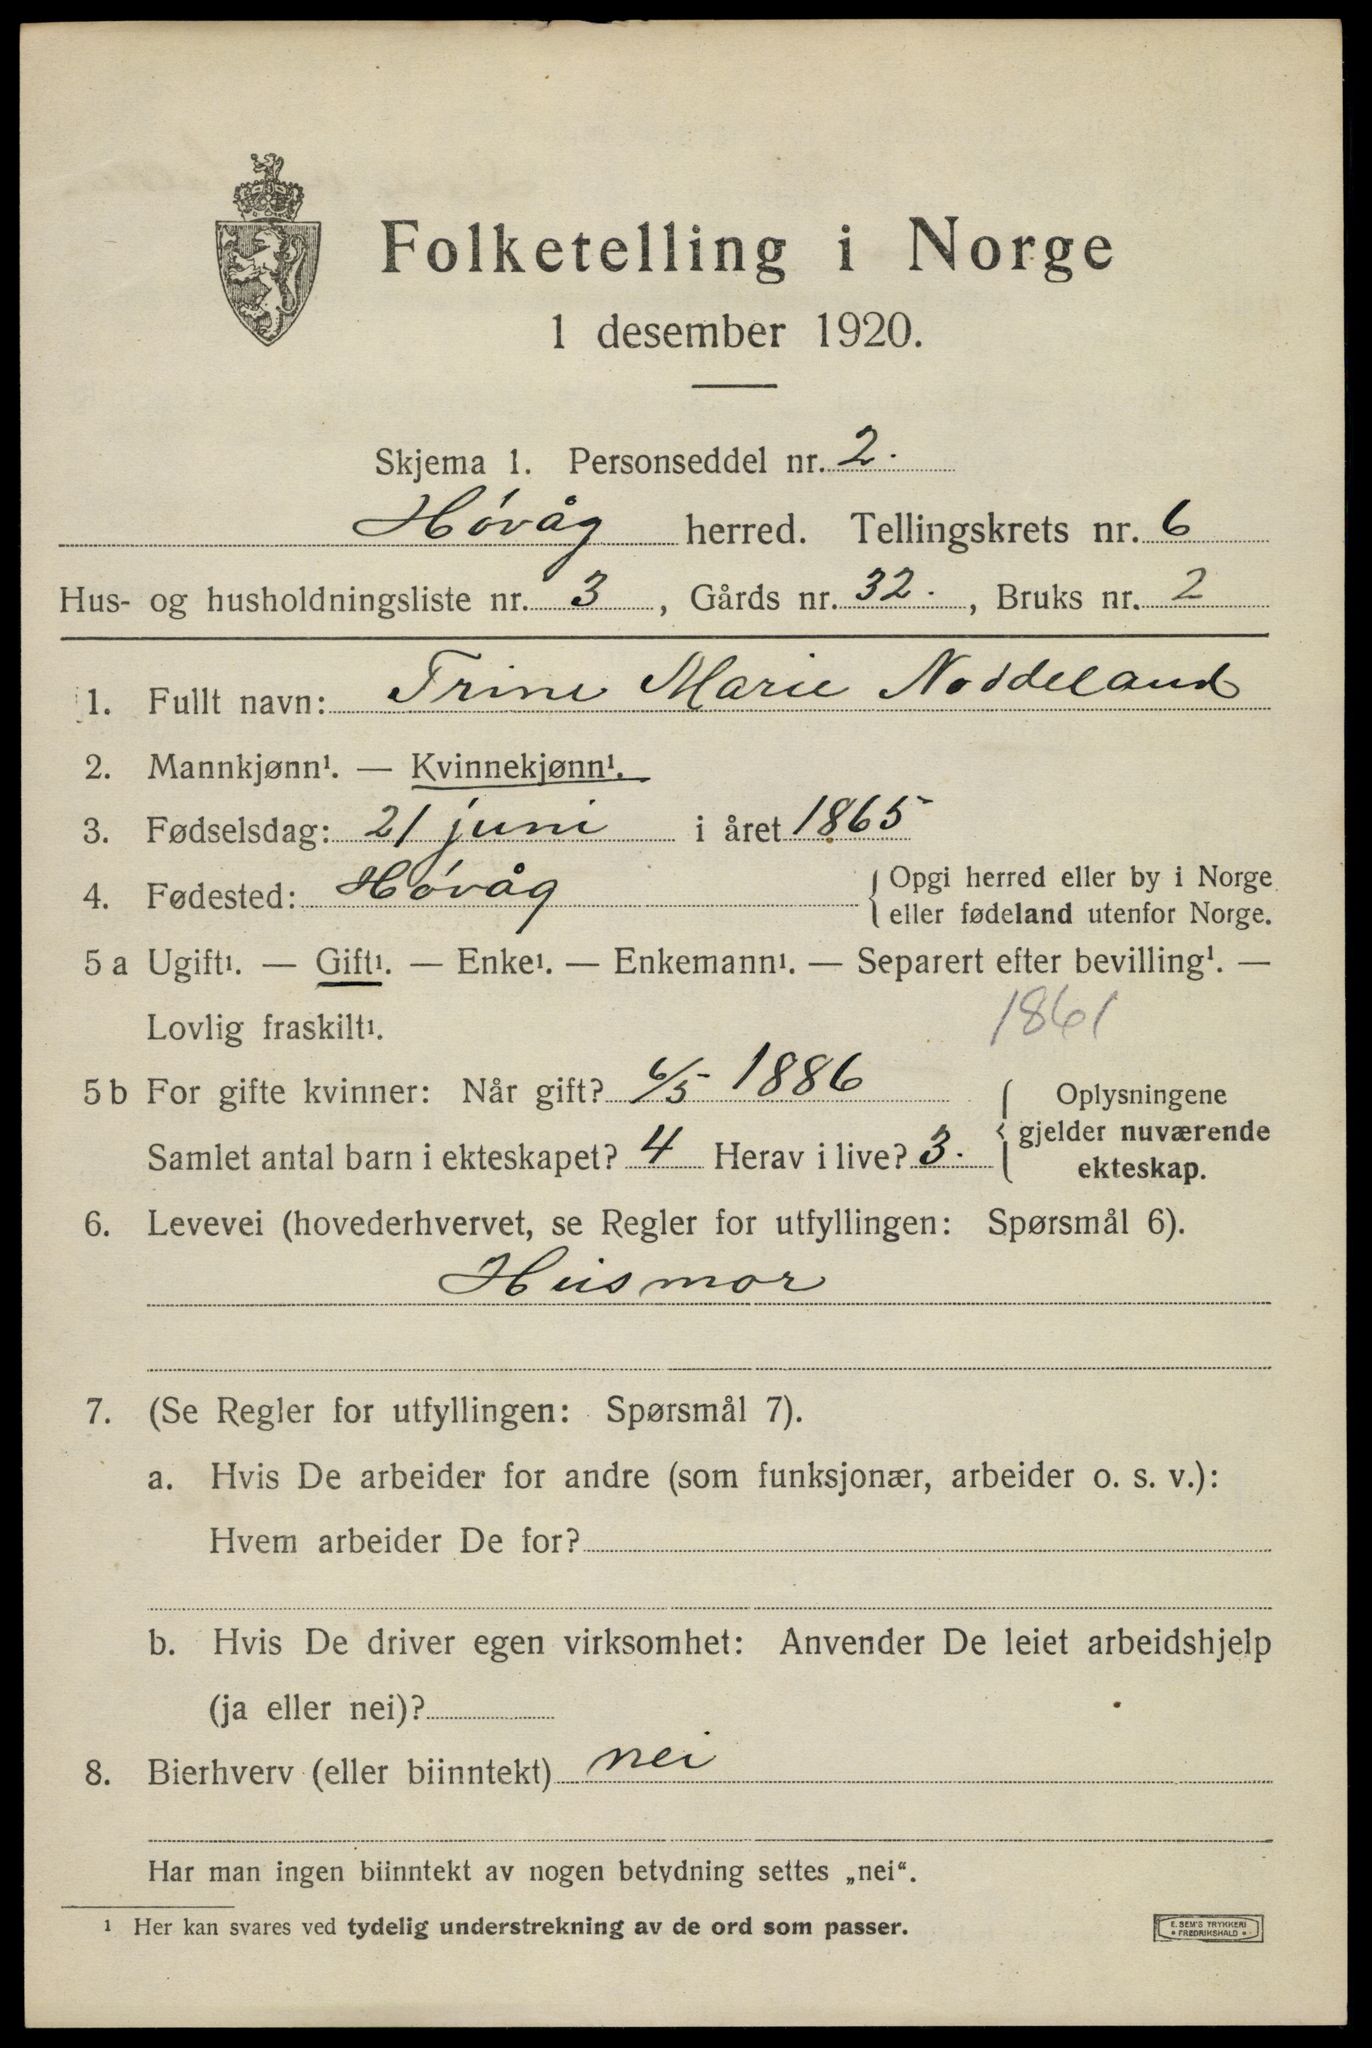 Folketelling i Norge
1 desember 1920.
Skjema 1. Personseddel nr. 2.
Høvåg herred. Tellingskrets nr. 6
Hus- og husholdningsliste nr. 3, Gårds nr. 32., Bruks nr. 2
1. Fullt navn: Trine Marie Noddeland
2. Mannkjønn¹. — Kvinnekjønn¹.
3. Fødselsdag: 21 juni i året 1865
4. Fødested: Høvåg { Opgi herred eller by i Norge
eller fødeland utenfor Norge.
5 a Ugift¹. — Gift¹. — Enke¹. — Enkemann¹. — Separert efter bevilling¹. —
Lovlig fraskilt¹. 1861
5 b For gifte kvinner: Når gift? 6/5 1886 { Oplysningene
gjelder nuværende
Samlet antal barn i ekteskapet? 4 Herav i live? 3. ekteskap.
6. Levevei (hovederhvervet, se Regler for utfyllingen: Spørsmål 6).
Husmor
7. (Se Regler for utfyllingen: Spørsmål 7).
a. Hvis De arbeider for andre (som funksjonær, arbeider o. s. v.):
Hvem arbeider De for?
b. Hvis De driver egen virksomhet: Anvender De leiet arbeidshjelp
(ja eller nei)?
8. Bierhverv (eller biinntekt) nei
Har man ingen biinntekt av nogen betydning settes „nei“.
¹ Her kan svares ved tydelig understrekning av de ord som passer.
E. SEM'S TRYKKERI
• FREDRIKSHALD •